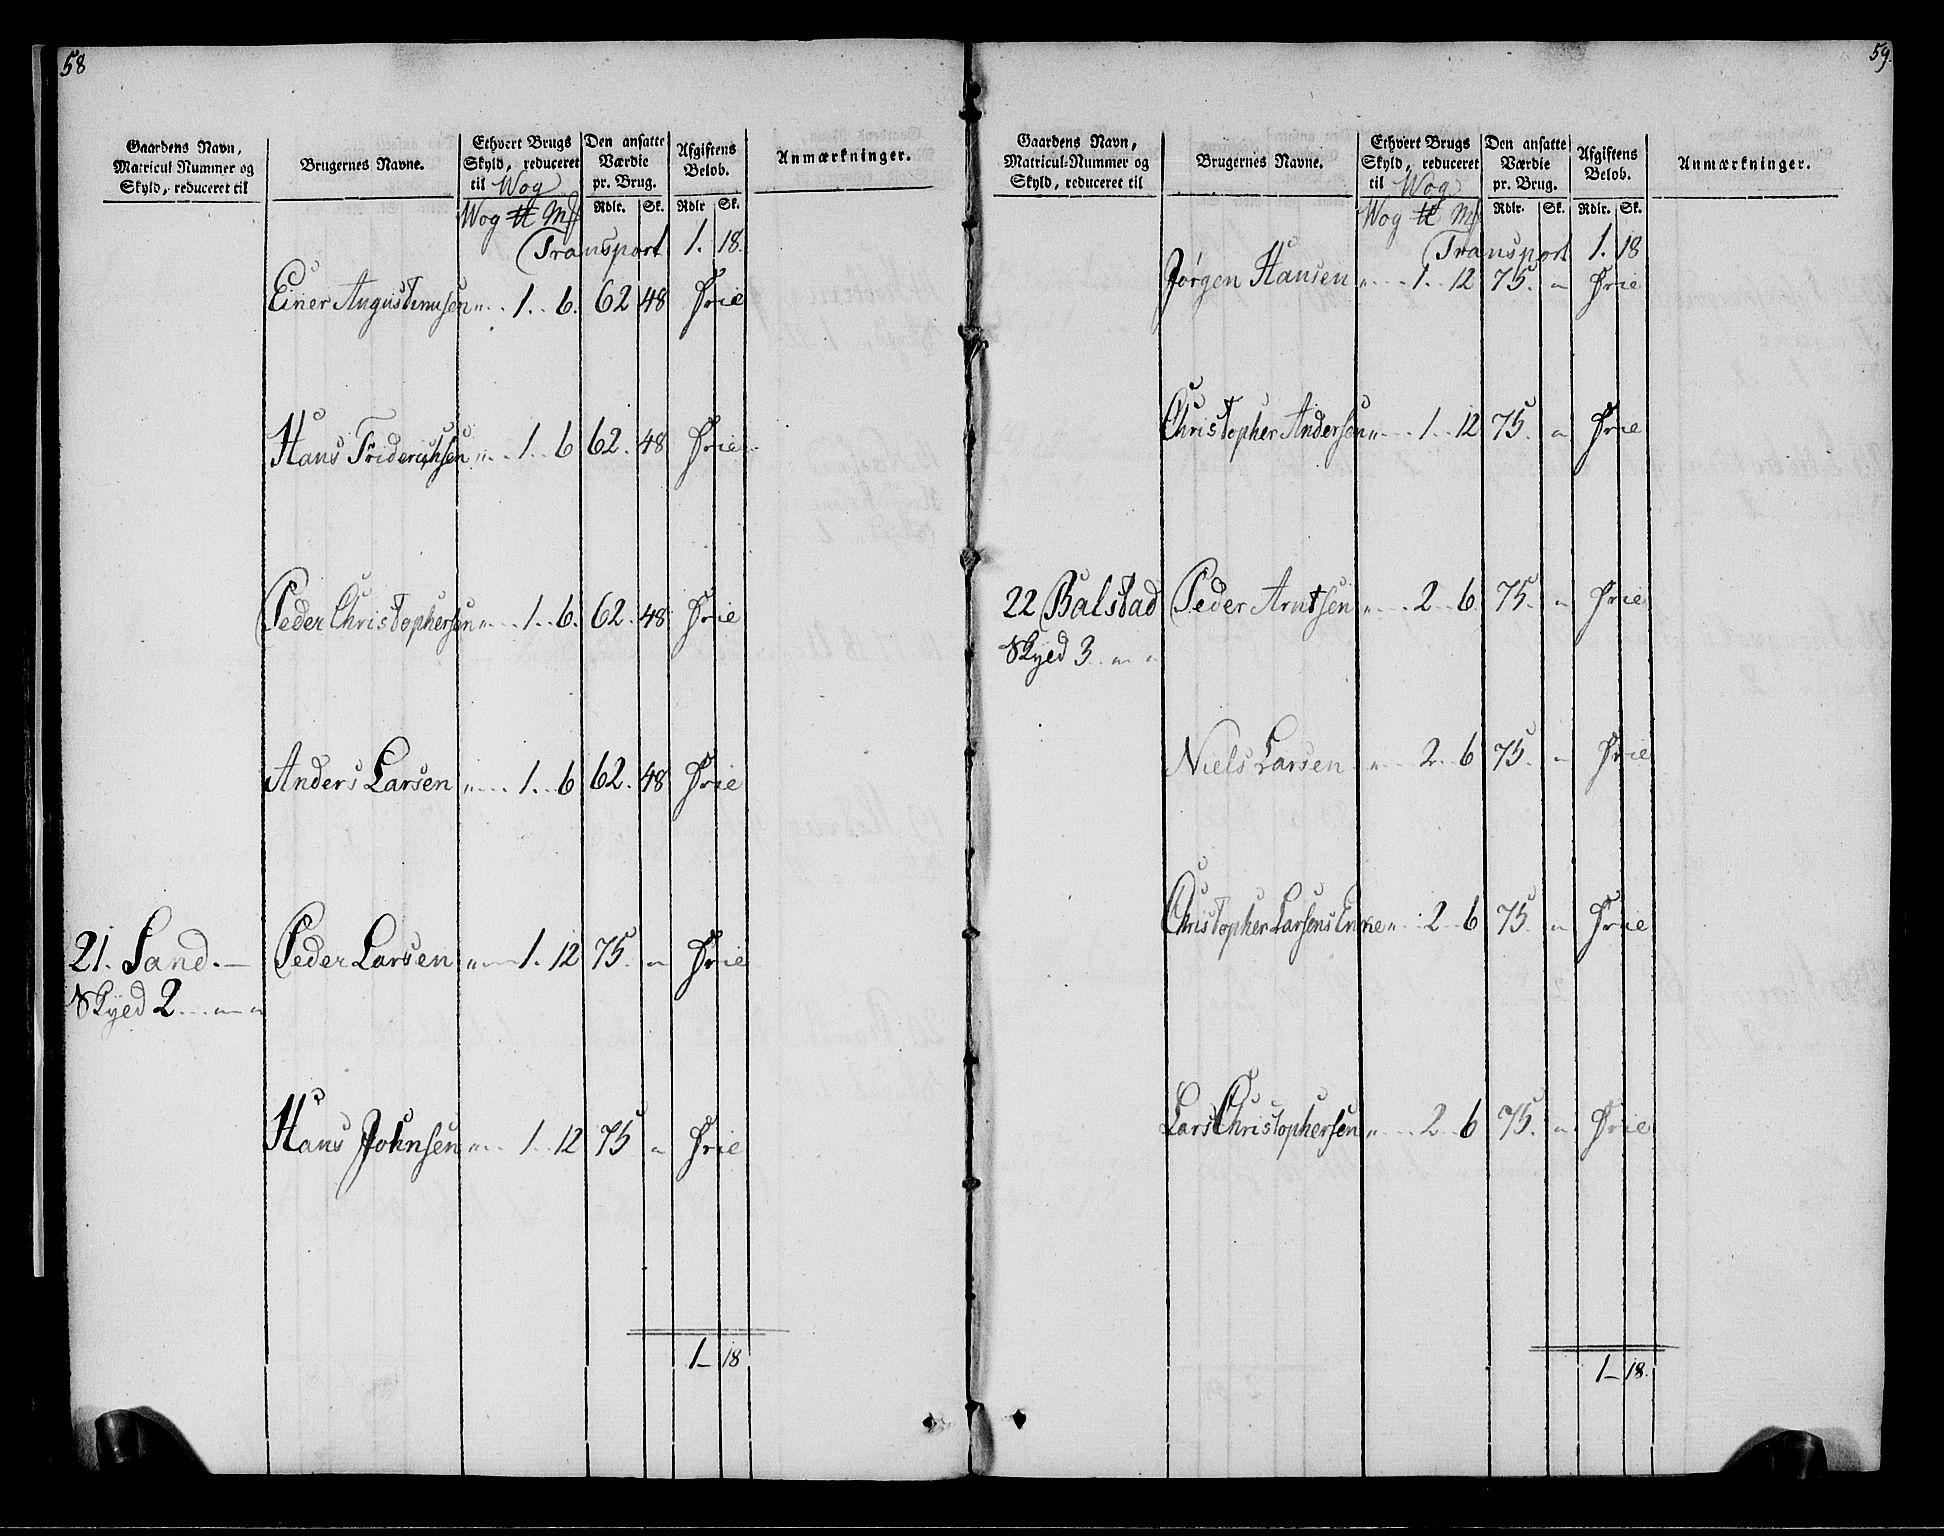 58
Gaardens Navn,
Matricul Nummer og
Skyld, reduceret til
Brugernes Navne.
Ethvert Brugs
Skyld, reduceret
til Wog
Den ansatte
Værdie
pr. Brug.
Afgiftens
Beløb.
Anmærkninger.
Wog ℔ Mk Rdlr. Sk. Rdlr Sk.
Transport 1. 18.
Einer Augustinusen „ 1 6. 62 48 Frie
Hans Friderichsen „ 1 6 62. 48 Frie
Peder Christophersen „ 1 6. 62. 48 Frie
Anders Larsen „ 1 6 62. 48 Frie
21. Sand. Peder Larsen „ 1. 12 75. „ Frie
Skyld 2 „ „
Hans Johnsen „ 1 12 75 „ Frie
1 18
59.
Gaardens Navn,
Matricul-Nummer og
Skyld, reduceret til
Brugernes Navne.
Ethvert Brugs
Skyld, reduceret
til Wog
Den ansatte
Værdie
pr. Brug.
Afgiftens
Beløb.
Anmærkninger.
Wog ℔ Mk Rdlr. Sk. Rdlr. Sk.
Transport 1. 18
Jørgen Hansen „ 1. 12 75. „ Frie
Christopher Andersen „ 1 12 75. „ Frie
22 Balstad Peder Arntsen „ 2 6 75. „ Frie
Skyld 3 „ „
Niels Larsen „ 2 6 75. „ Frie
Christopher Larsens Enke „ 2 6 75. „ Frie
Lars Christophersen „ 2 6 75. „ Frie
1 18.